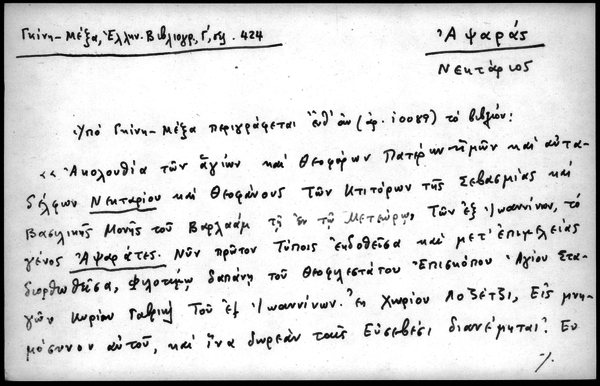 Γκίνη - Μέξα, Ἑλλην. Βιβλιογρ, Γ', σελ. 424
Ἀψαράς
Νεκτάριος
Ὑπό Γκίνη - Μέξα περιγράφεται ἐνθ' ἀν (ἀρ. 10089) τό βιβλίον:
«Ἀκολουθία τῶν ἁγίων καί Θεοφόρων Πατέρων ἡμῶν καί αὐτα-
δέλφων Νεκταρίου καί Θεοφάνους τῶν Κτιτόρων τῆς Σεβασμίας καί
Βασιλικῆς Μονῆς τοῦ Βαρλαάμ τῆς ἐν τῷ Μετεώρῳ, τῶν ἐξ Ἰωαννίνων, τό
γένος Ἀψαράτες. Νῦν πρῶτον τύποις ἐκδοθεῖσα καί μετ' ἐπιμελείας
διορθωθεῖσα, φιλοτίμῳ δαπάνῃ τοῦ Θεοφιλεστάτου Ἐπισκόπου Ἁγίου Στα-
γῶν Κυρίου Γαβριήλ τοῦ ἐξ Ἰωαννίνων. Ἐκ Χωρίου Λοζέτζι, Εἰς μνη-
μόσυνον αὐτοῦ, καί ἵνα δωρεάν τοῖς Εὐσεβέσι διανέμηται. Ἐν
./.